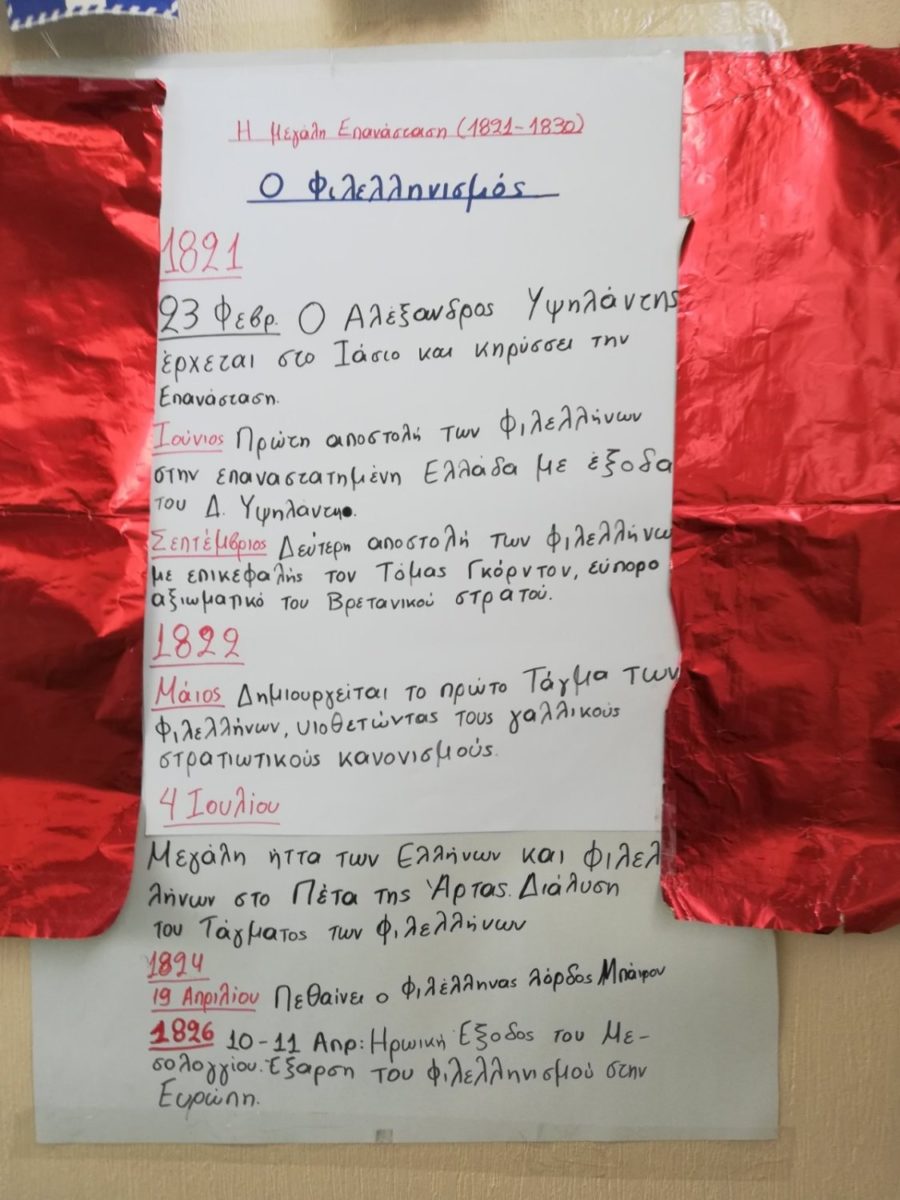 Η Μεγάλη Επανάσταση (1821-1830)
Ο Φιλελληνισμός
1821
23 Φεβρ. Ο Αλέξανδρος Υψηλάντης
έρχεται στο Ιάσιο και κηρύσσει την
Επανάσταση.
Ιούνιος Πρώτη αποστολή των Φιλελλήνων
στην επαναστατημένη Ελλάδα με έξοδα
του Δ. Υψηλάντη.
Σεπτέμβριος Δεύτερη αποστολή των φιλελλήνω
με επικεφαλής τον Τόμας Γκόρντον, εύπορο
αξιωματικό του Βρετανικού στρατού.
1822
Μάιος Δημιουργείται το πρώτο Τάγμα των
Φιλελλήνων, υιοθετώντας τους γαλλικούς
στρατιωτικούς κανονισμούς.
4 Ιουλίου
Μεγάλη ήττα των Ελλήνων και φιλελ
λήνων στο Πέτα της Άρτας. Διάλυση
του Τάγματος των Φιλελλήνων
1824
19 Απριλίου Πεθαίνει ο Φιλέλληνας λόρδος Μπάιρον
1826 10-11 Απρ: Ηρωική Έξοδος του Με-
σολογγίου. Έξαρση του φιλελληνισμού στην
Ευρώπη.